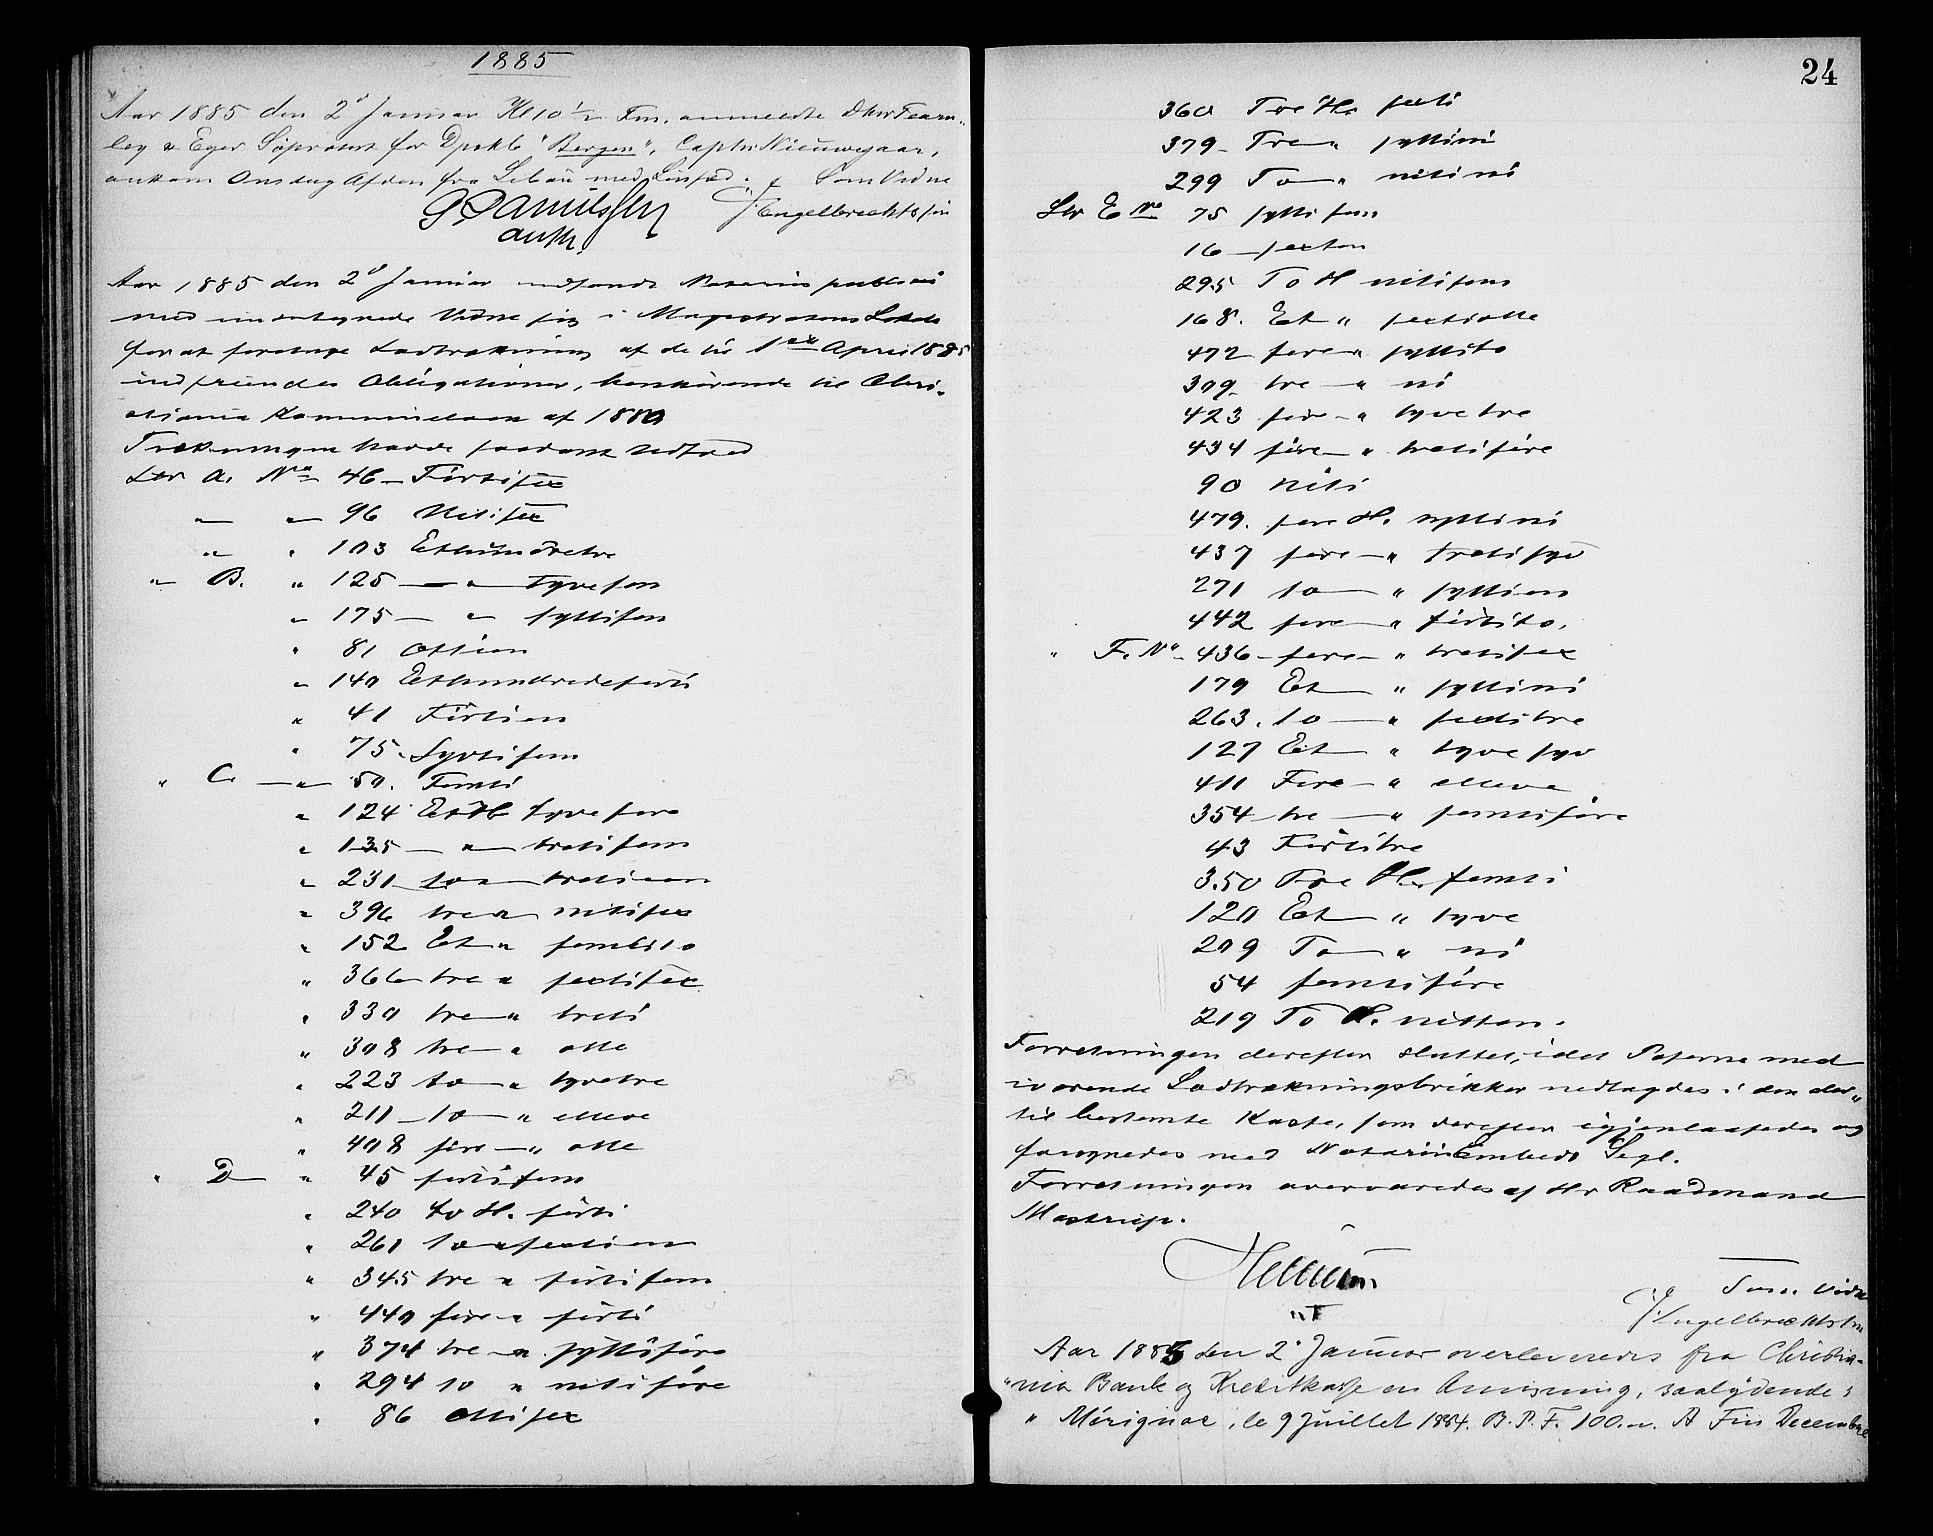 1885
Aar 1885 den 2d Januar Kl 10 1/2 Fm. anmeldte DHrr Fearn„
ley & Eger Søprotest for Dpskb "Bergen", Captn Nieuwejaar,
ankom Onsdag Aften fra Libau med Linfrø. Som Vidne
Engelbrechtsen
auth
Aar 1885 den 2d Januar indfandt Notarius publicus
med undertegnede Vidne sig i Magistratens Lokale
for at foretage Lodtrækning af de til 1ste April 1885
indfriendes Obligationer, henhørende til Chri-
stiania Kommunelaan af 1880
Trækningen havde saadant Udfald
Ltr A. No 46 – Førtisex
„ „ 96 Nitisex
„ „ 103 Ethundretre
„ B. „ 125 — „ — tyvefem
„ 175 — „ — syttifem
„ 81 Ottien
„ 140 Ethundredeførti
„ 41 Førtien
„ 75. Syttifem
„ C. — „ 50. Femti
„ 124 Et H tyvefire
„ 135 — „ — trettifem
„ 231 to „ — trettien
„ 396 tre „ nittisex
„ 152 Et „ femtito
„ 366 tre „ sextisex
„ 330 tre — „ tretti
„ 308 tre — „ otte
„ 223 to — „ tyvetre
„ 211 – to — „ elleve
„ 408 fire — „ otte
„ D — „ 45 førtifem
„ 240 to H. førti
„ 261 to „ sextien
„ 345 tre „ førtifem
„ 440 fire „ førti
„ 374 tre — „ syttifire
„ 294 to „ nittifire
„ 86 ottisex
24
360 Tre H. sexti
379 – Tre „ syttini
299 To — „ nittini
Ltr E No 75 syttifem
16 – sexten
295 To H nittifem
168. Et „ sextiotte
472 fire „ syttito
309 – tre — „ ni
423 fire — „ tyvetre
434 fire — „ trettifire
90 nitti
479. fire H. syttini
437 fire — „ trettisyv
271 to — „ syttien
442 fire — „ førtito.
„ F. No – 436 – fire — „ trettisex
179 Et — „ syttini
263. to — „ sextitre
127 Et — „ tyvesyv
411 Fire — „ elleve
354 – tre — „ femtifire
43 Førtitre
350 Tre H. femti
120 Et — „ tyve
209 To — „ ni
54 femtifire
219 To H. nitten.
Forretningen derefter sluttet, idet Poserne med
iværende Lodtrækningsbrikker nedlagdes i den der„
til bestemte Kasse, som derefter igjenlaasedes og
forsynedes med Notarii Embeds Segl.
Forretningen overværedes af Hr Raadmand
Mastrup.
Som Vidne
Engelbrechtsen
Aar 1885 den 2d Januar overleveredes fra Christia-
„nia Bank og Kreditkasse en Anvisning, saalydende:
„ Mérignac, le 9 Juillet 1884. B.P.F. 100.„. A Fin Decembre